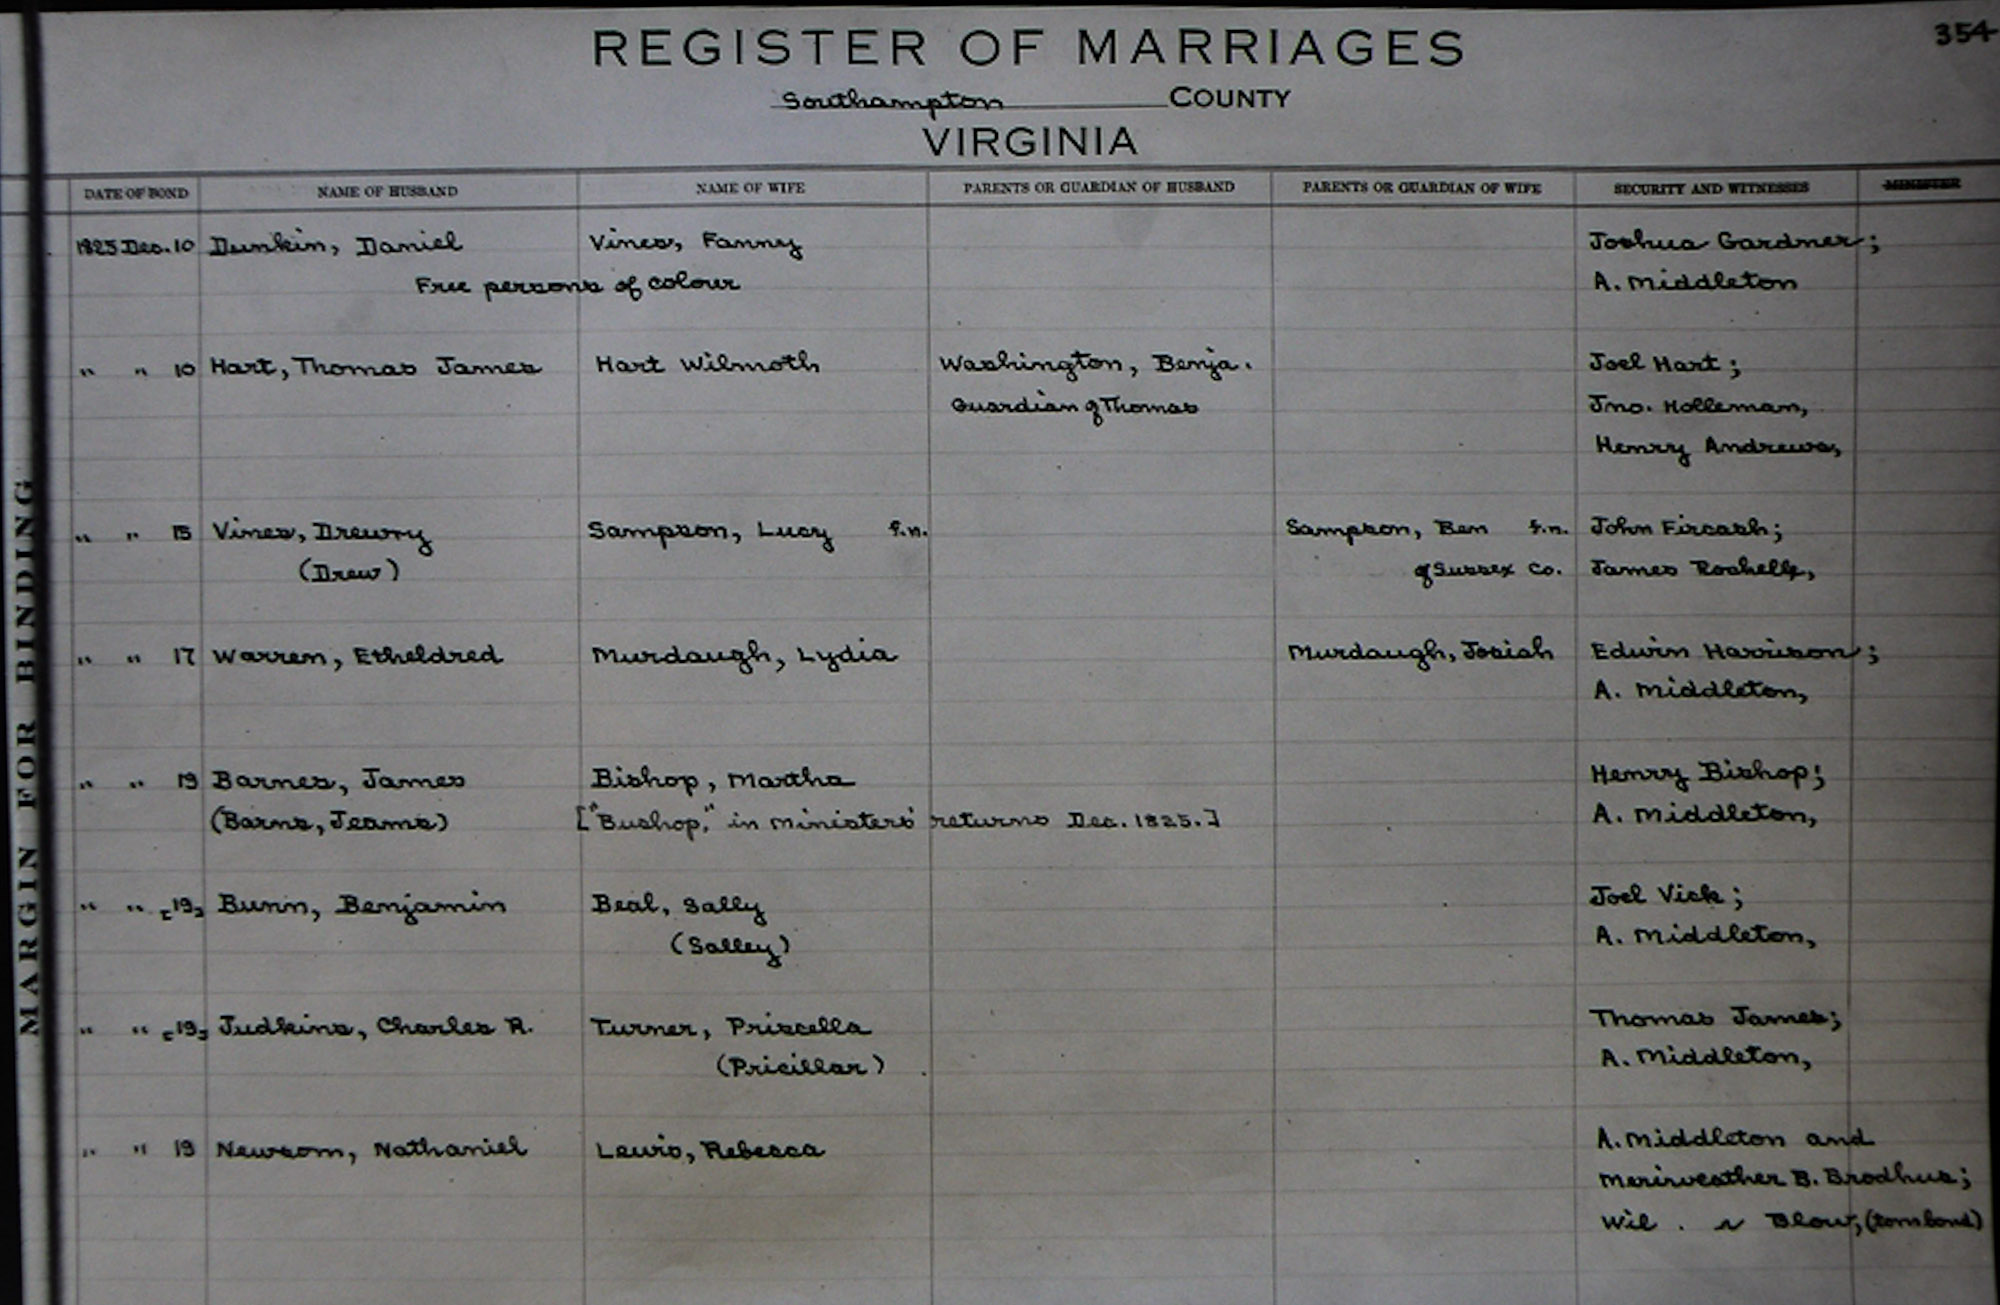 354
REGISTER OF MARRIAGES
Southampton COUNTY
VIRGINIA
DATE OF BOND NAME OF HUSBAND NAME OF WIFE PARENTS OR GUARDIAN OF HUSBAND PARENTS OR GUARDIAN OF WIFE SECURITY AND WITNESSES MINISTER
1825 Dec. 10 Dunkin, Daniel Vines, Fanny Joshua Gardner;
Free persons of colour A. Middleton
" " 10 Hart, Thomas James Hart Wilmoth Washington, Benja. Joel Hart;
Guardian of Thomas Jno. Holleman,
Henry Andrews,
" " 15 Vines, Drewry Sampson, Lucy f.n. Sampson, Ben f.n. John Fircash;
(Drew) of Sussex Co. James Rochelle,
" " 17 Warren, Etheldred Murdaugh, Lydia Murdaugh, Josiah Edwin Harrison;
A. Middleton,
" " 19 Barnes, James Bishop, Martha Henry Bishop;
(Barns, Jeams) ["Bushop," in ministers' returns Dec. 1825.] A. Middleton,
" " [19] Bunn, Benjamin Beal, Sally Joel Vick;
(Salley) A. Middleton,
" " [19] Judkins, Charles R. Turner, Priscella Thomas James;
(Pricillar) A. Middleton,
" " 19 Newsom, Nathaniel Lewis, Rebecca A. Middleton and
Meriweather B. Brodhus;
Wil . Blow, (torn bond)
MARGIN FOR BINDING